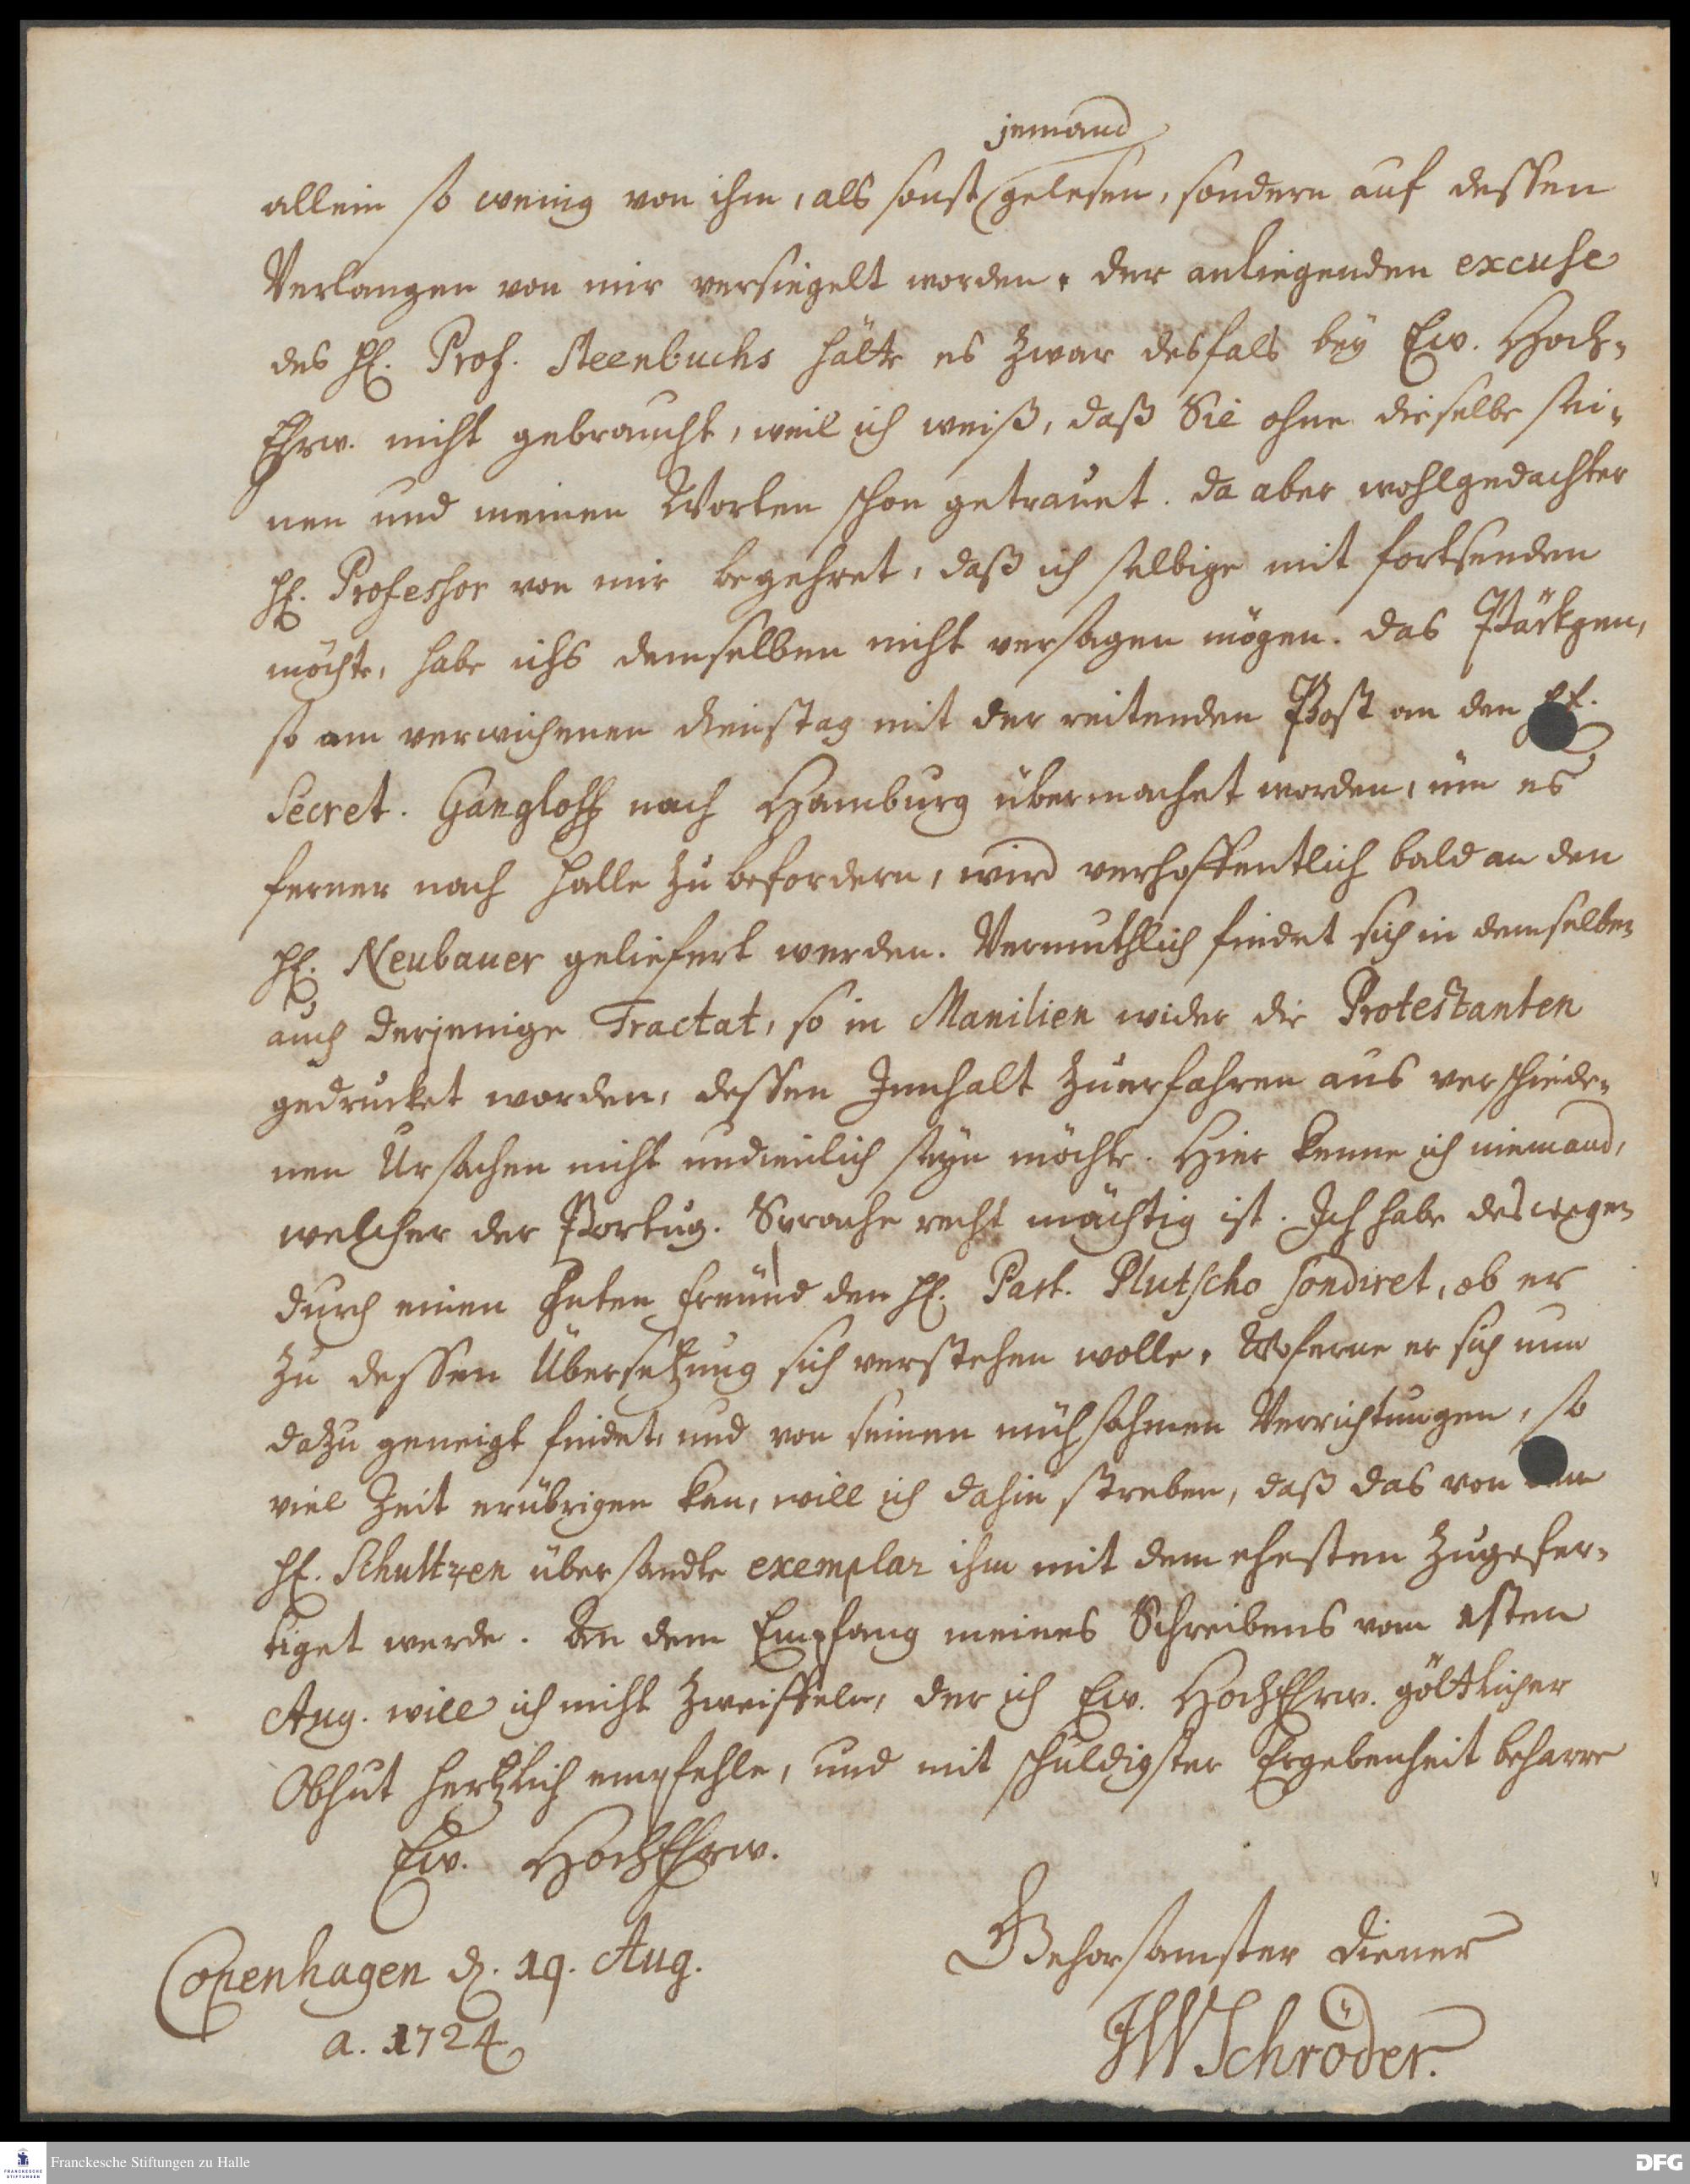 jemand
allein so wenig von ihm, als sonst gelesen, sondern auf dessen
Verlangen von mir versiegelt worden. der anliegenden excuse
des H. Prof. Steenbuchs hätte es zwar desfals bey Ew. Hoch-
Ehrw. nicht gebraucht, weil ich weiß, daß Sie ohne dieselbe sei-
nen und meinen Worten schon getrauet. da aber wohlgedachter
H. Professor von mir begehret, daß ich selbige mit fortsenden
möchte, habe ichs demselben nicht versagen mögen. das Päckgen,
so am verwichenen dienstag mit der reitenden Post an den H.
Secret. Gangloff nach Hamburg übermachet worden, um es
ferner nach Halle zu befordern, wird verhoffentlich bald an den
H. Neubauer geliefert werden. Vermuthlich findet sich in demselben
auch derjenige Tractat, so in Manilien wider die Protestanten
gedrucket worden, dessen Innhalt zuerfahren aus verschiede-
nen Ursachen nicht undienlich seyn möchte. Hier kenne ich niemand,
welcher der Portug. Sprache recht mächtig ist. Ich habe deswegen
durch einen guten freund den H. Past. Plutscho sondiret, ob er
zu dessen Übersetzung sich verstehen wolle. Woferne er sich nun
dazu geneigt findet, und von seinen mühsahmen Verrichtungen, so
viel Zeit erübrigen kan, will ich dahin streben, daß das von
H. Schultzen übersandte exemplar ihm mit dem ehesten zugefer-
tiget werde. An dem Empfang meines Schreibens vom 1sten
Aug. will ich nicht zweiffeln, der ich Ew. HochEhrw. göttlicher
Obhut hertzlich empfehle, und mit schuldigster Ergebenheit beharre
Ew. HochEhrw.
Gehorsamster diener
Copenhagen d. 19. Aug.
a. 1724
JWSchröder.
Franckesche Stiftungen zu Halle
FRANCKESCHE STIFTUNGEN
DFG